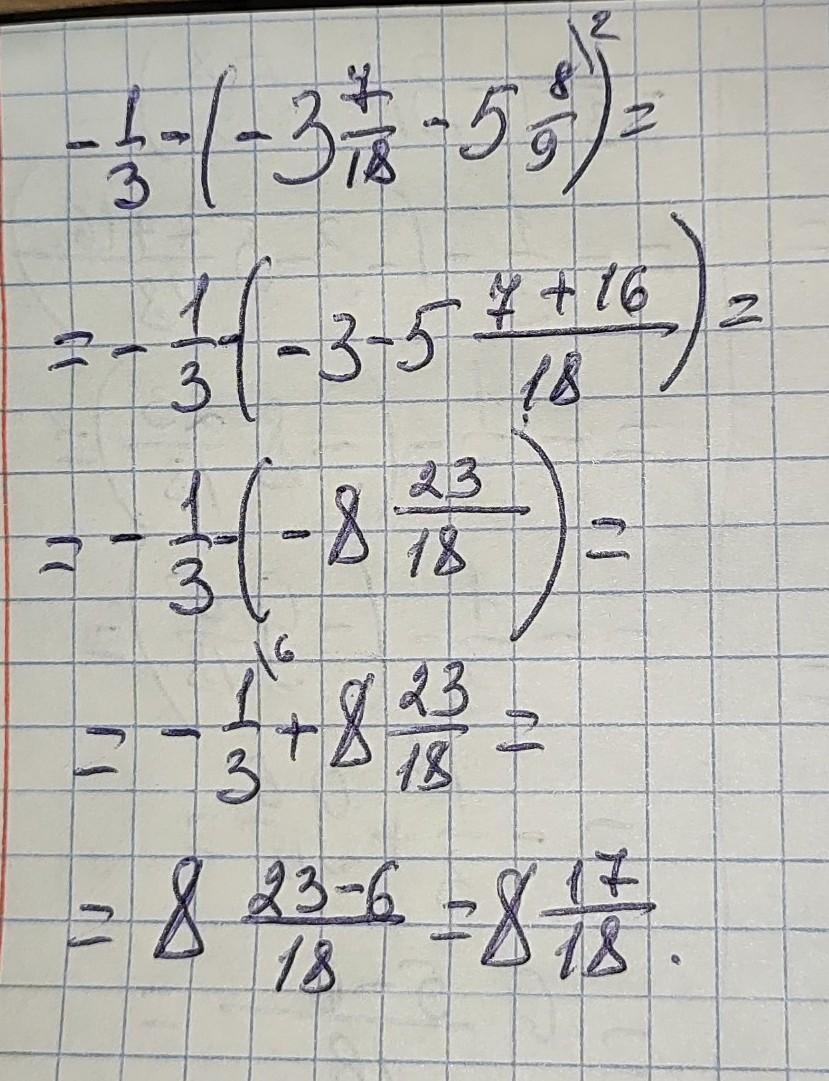 -1/3-(-3 7/18-5 8/9\2)=
=-1/3-(-3-5 (7+16)/18)=
=-1/3-(-8 23/18)=
=-1/3\6+8 23/18=
=8 (23-6)/18=8 17/18.